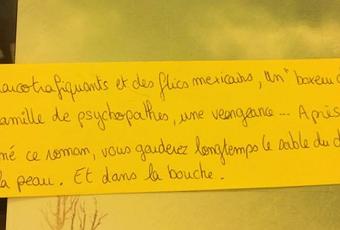 narcotrafiquants et des flics mexicains, un* boxeur
famille de psychopathes, une vengeance... Après
mé ce roman, vous garderez longtemps le sable du d
la peau. Et dans la bouche.